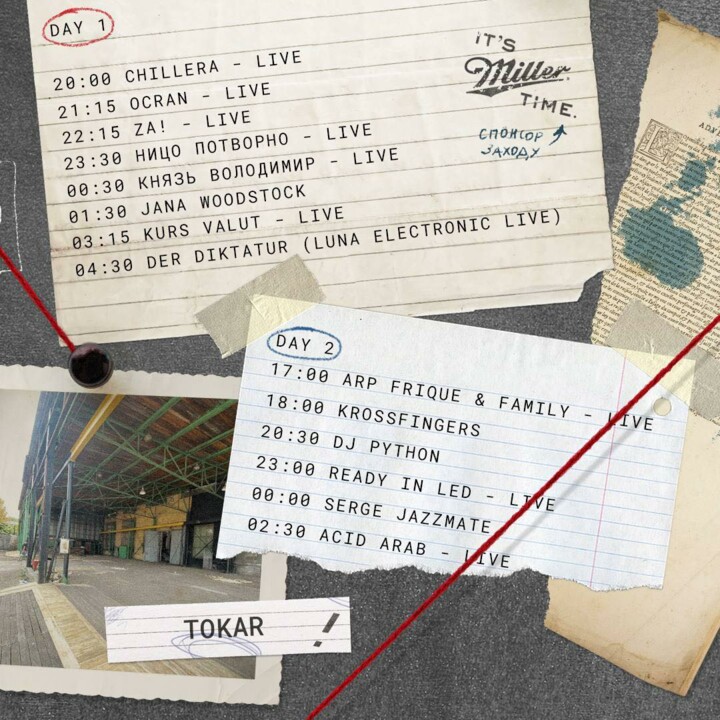 DAY 1
20:00 CHILLERA - LIVE
21:15 OCRAN - LIVE
22:15 ZA! - LIVE
23:30 НИЦО ПОТВОРНО - LIVE
00:30 КНЯЗЬ ВОЛОДИМИР - LIVE
01:30 JANA WOODSTOCK
03:15 KURS VALUT - LIVE
04:30 DER DIKTATUR (LUNA ELECTRONIC LIVE)
IT'S
Miller
TIME.
СПОНСОР
ЗАХОДУ
DAY 2
17:00 ARP FRIQUE & FAMILY - LIVE
18:00 KROSSFINGERS
20:30 DJ PYTHON
23:00 READY IN LED - LIVE
00:00 SERGE JAZZMATE
02:30 ACID ARAB - LIVE
TOKAR !